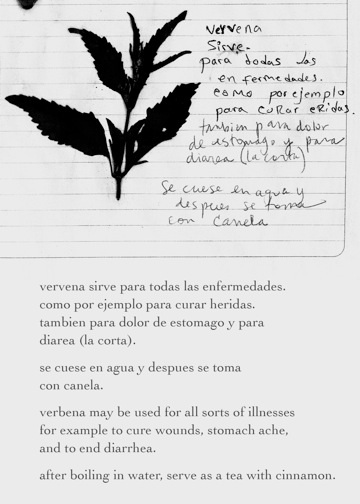 vervena
Sirve.
para todas las
en fermedades.
como por ejemplo
para curar eridas.
tambien para dolor
de estomago y para
diarea (la corta)
Se cuese en agua y
despues se toma
con canela
vervena sirve para todas las enfermedades.
como por ejemplo para curar heridas.
tambien para dolor de estomago y para
diarea (la corta).
se cuese en agua y despues se toma
con canela.
verbena may be used for all sorts of illnesses
for example to cure wounds, stomach ache,
and to end diarrhea.
after boiling in water, serve as a tea with cinnamon.